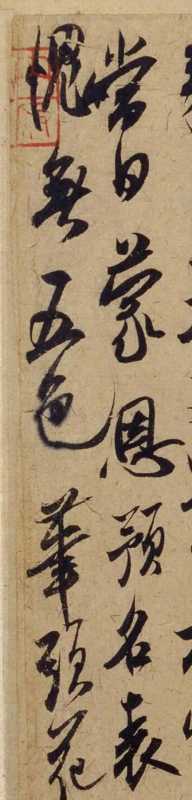 當日蒙恩預名表
愧無五色筆頭花